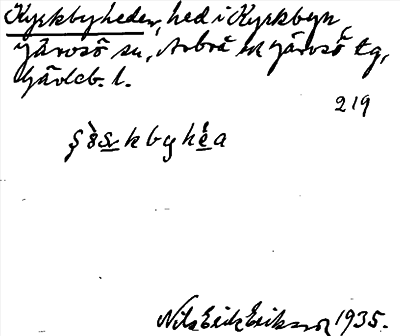 Kyrkbyheden, hed i Kyrkbyn,
Järvsö sn, Arbrå o Järvsö tg,
Gävleb. l.
219
Nils Erik Eriksson 1935.